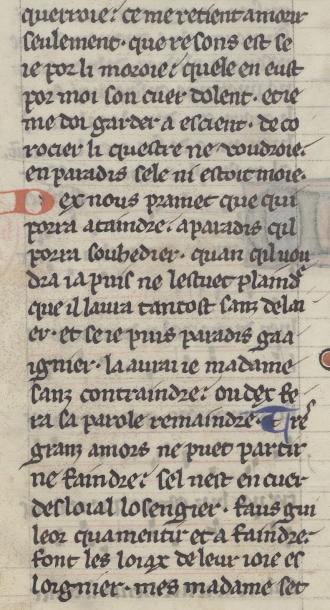 querroie. ce me retient amorir
seulement. que resons est se
ie por li moroie. quele en eust
por moi son cuer dolent. et ie
me doi garder a escient. de co
rocier li questre ne voudroie.
en paradis sele ni estoit moie.
Dex nous pramet que qui
porra ataindre. a paradis qil
porra souhedier. quan qil vou
dra ia puis ne lestuet plaindr
que il laura tantost sanz delai
er. et se ie puis paradis gaa
ignier. la aurai ie madame
sanz contraindre. ou dex fe
ra sa parole remaindre. Tres
granz amors ne puet partir
ne faindre. sel nest en cuer
desloial losengier. faus gui
leor qua mentir et a faindre.
font les loiax de leur ioie es
loignier. mes madame set